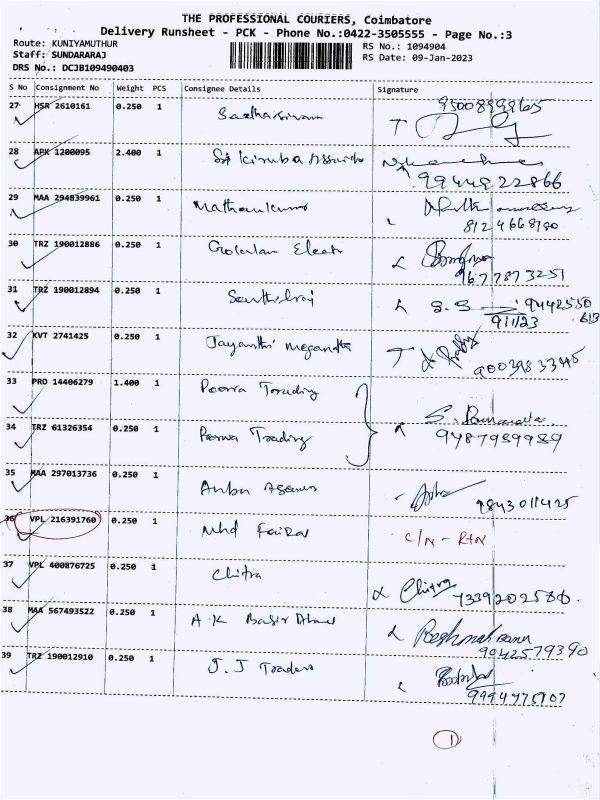 THE PROFESSIONAL COURIERS, Coimbatore
Delivery Runsheet - PCK - Phone No.:0422-3505555 - Page No.:3
Route: KUNIYAMUTHUR RS No.: 1094904
Staff: SUNDARARAJ RS Date: 09-Jan-2023
DRS No.: DCJB109490403
S No Consignment No Weight PCS Consignee Details Signature
27 HSR 2610161 0.250 1
28 APK 1200095 2.400 1 9944922866
29 MAA 294839961 0.250 1 8124668190
30 TRZ 190012886 0.250 1 9677873251
31 TRZ 190012894 0.250 1 S.S
9/1/23
32 KVT 2741425 0.250 1 Jayanthi
33 PRO 14406279 1.400 1 Poorva Trading
34 TRZ 61326354 0.250 1 Poorva Trading 9487959989
35 MAA 297013736 0.250 1 Anbu 9843011425
36 VPL 216391760 0.250 1 Mhd C/N - RTN
37 VPL 400876725 0.250 1 Chitra Chitra 7339202580.
38 MAA 567493522 0.250 1 A.K Basir Ahmed 9042579390
39 TRZ 190012910 0.250 1 J.J Traders
1